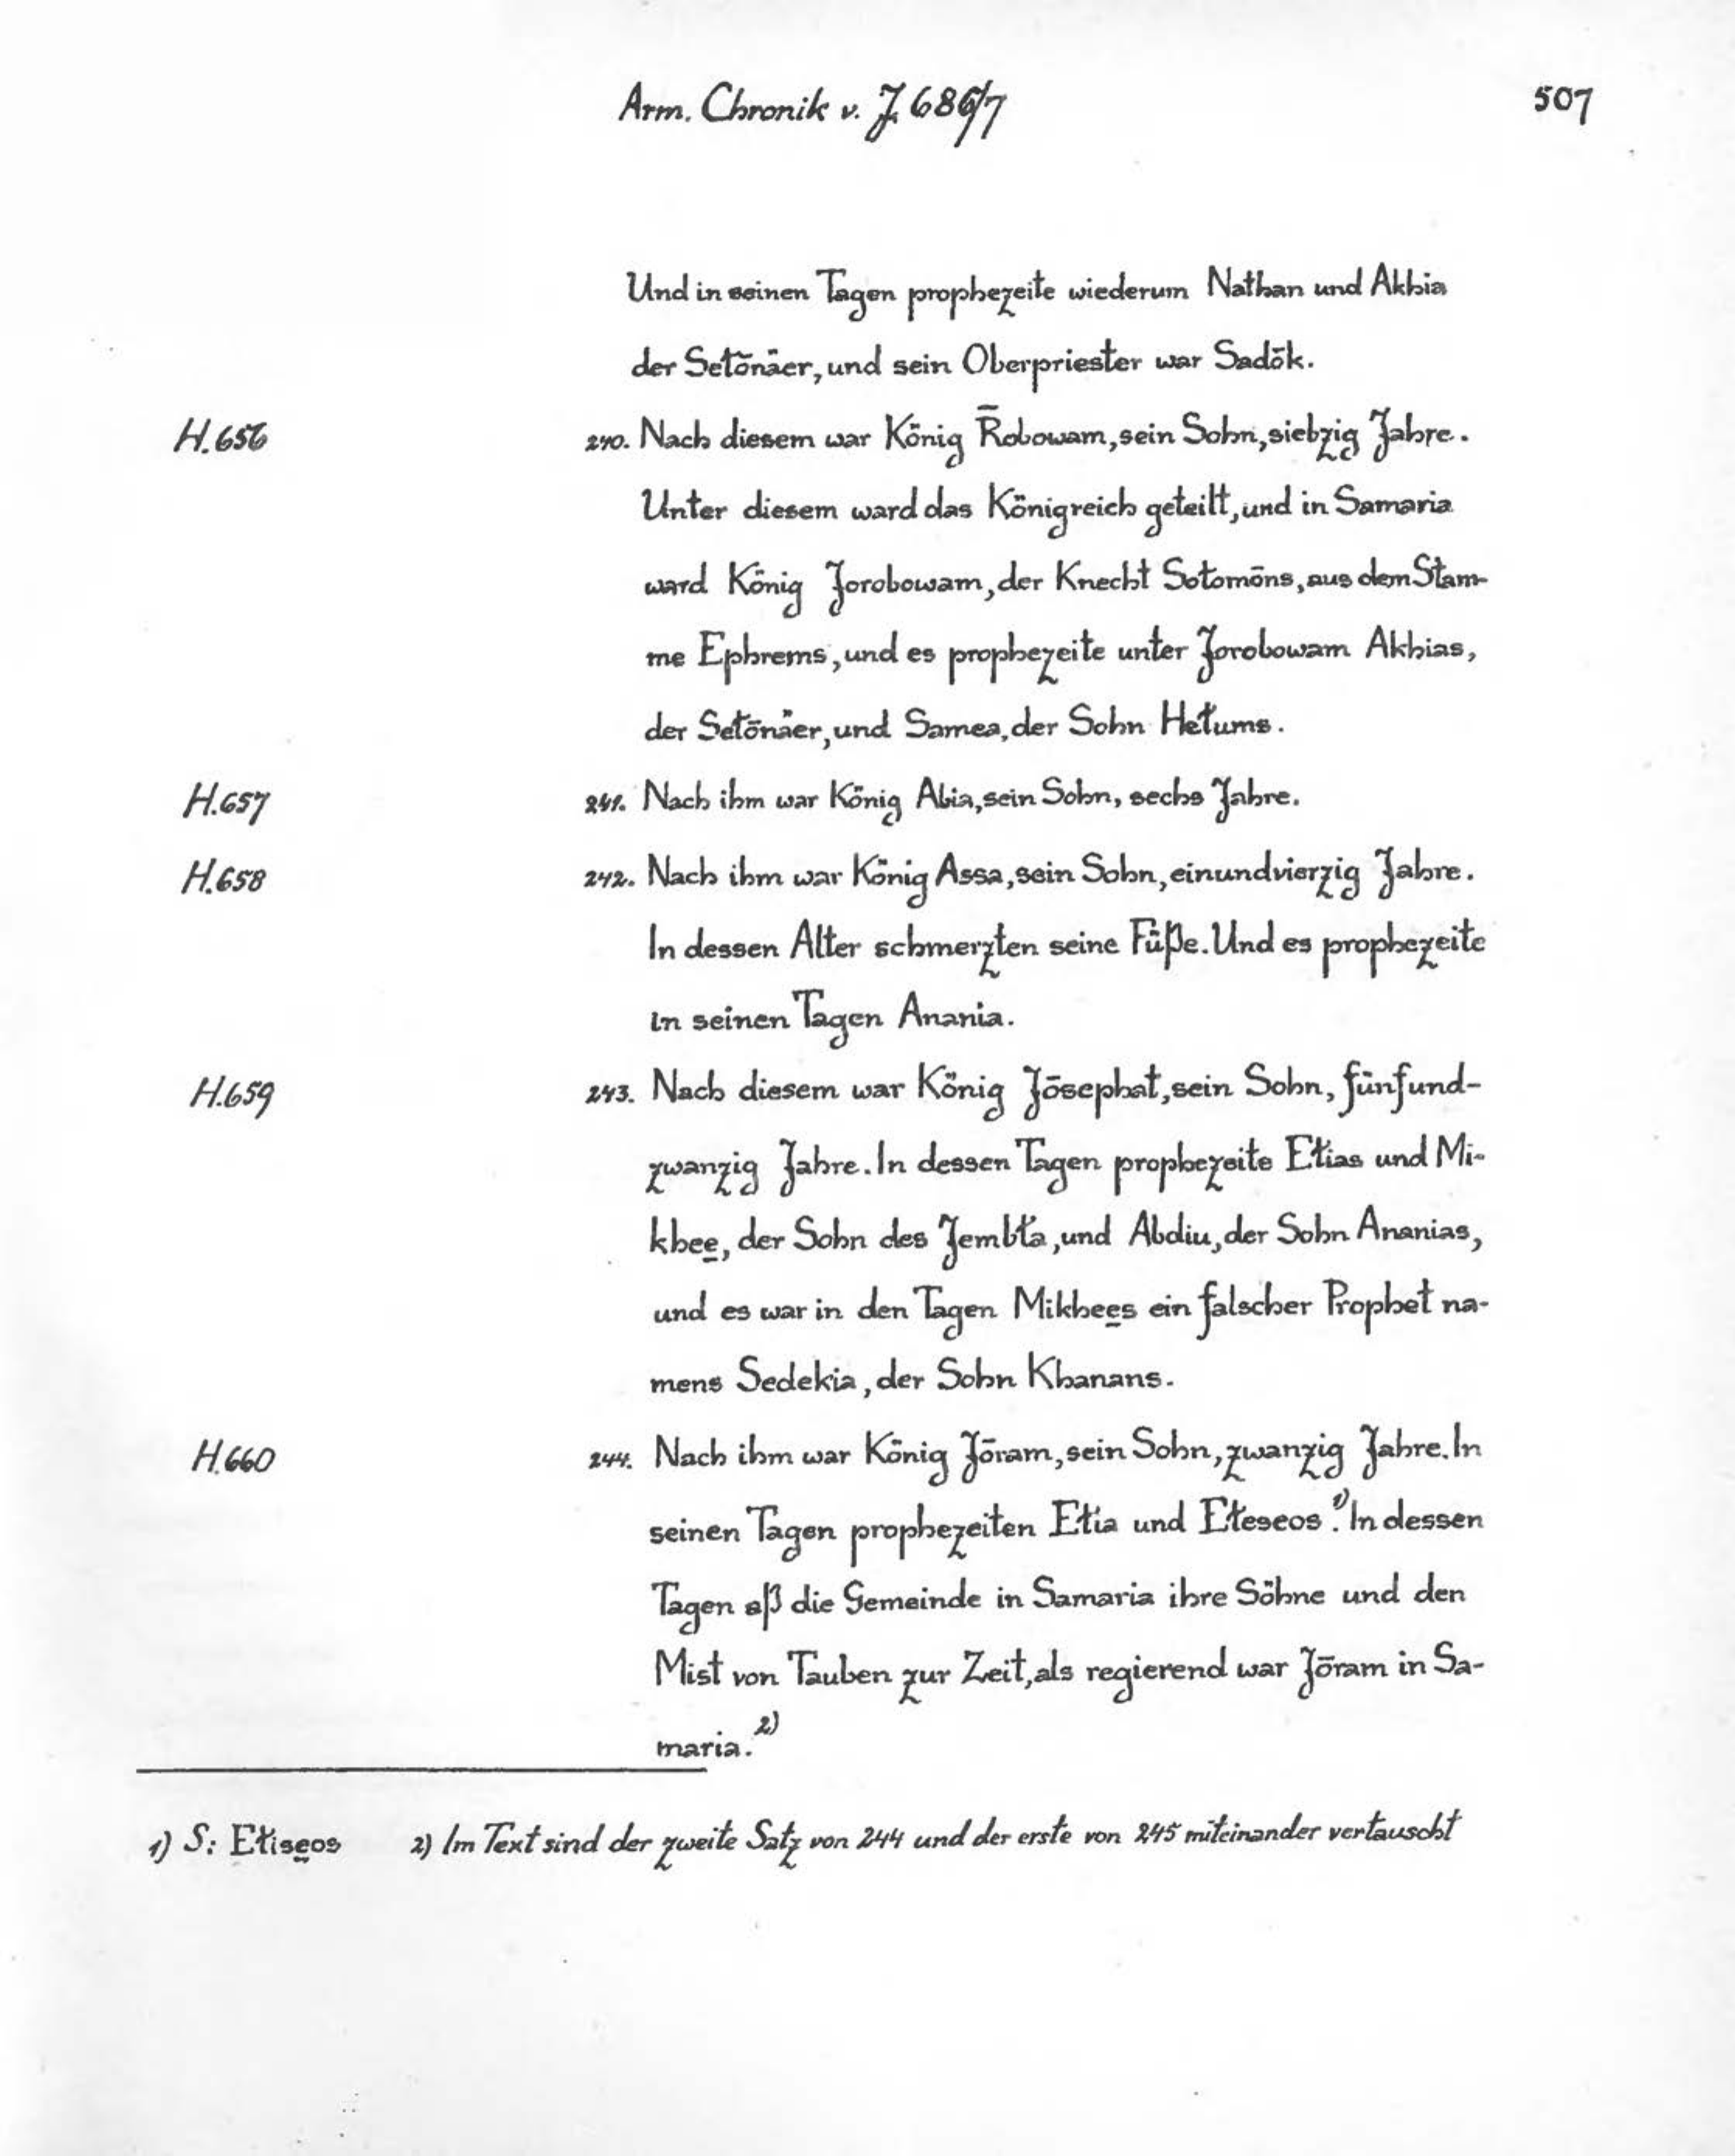 Arm. Chronik v. J. 686/7
507
Und in seinen Tagen prophezeite wiederum Nathan und Akhia
der Sełōnäer, und sein Oberpriester war Sadōk.
H.656
240. Nach diesem war König R̄obowam, sein Sohn, siebzig Jahre.
Unter diesem ward das Königreich geteilt, und in Samaria
ward König Jorobowam, der Knecht Sołomōns, aus dem Stam-
me Ephrems, und es prophezeite unter Jorobowam Akhias,
der Sełōnäer, und Samea, der Sohn Hełums.
H.657
241. Nach ihm war König Abia, sein Sohn, sechs Jahre.
H.658
242. Nach ihm war König Assa, sein Sohn, einundvierzig Jahre.
In dessen Alter schmerzten seine Füße. Und es prophezeite
in seinen Tagen Anania.
H.659
243. Nach diesem war König Jōsephat, sein Sohn, fünfund-
zwanzig Jahre. In dessen Tagen prophezeite Ełias und Mi-
khee̱, der Sohn des Jembła, und Abdiu, der Sohn Ananias,
und es war in den Tagen Mikhee̱s ein falscher Prophet na-
mens Sedekia, der Sohn Khanans.
H.660
244. Nach ihm war König Jōram, sein Sohn, zwanzig Jahre. In
seinen Tagen prophezeiten Ełia und Ełeseos.1) In dessen
Tagen aß die Gemeinde in Samaria ihre Söhne und den
Mist von Tauben zur Zeit, als regierend war Jōram in Sa-
maria.2)
1) S: Ełise̱os 2) Im Text sind der zweite Satz von 244 und der erste von 245 miteinander vertauscht